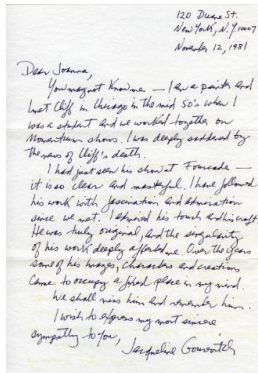 120 Duane St.
New York, N.Y. 10007
November 12, 1981
Dear Joanna,
You may not know me — I am a painter and
I met Cliff in Chicago in the mid 50's when I
was a student and we worked together on
Momentum shows. I was deeply saddened by
the news of Cliff's death.
I had just seen his show at Fourcade —
it is so clear and masterful. I have followed
his work with fascination and admiration
since we met. I admired his touch and his craft
He was truly original, and the singularity
of his work deeply affected me. Over the years
some of his images, characters and creations
came to occupy a fixed place in my mind.
We shall miss him and remember him.
I wish to express my most sincere
sympathy to you,
Jacqueline Gourevitch